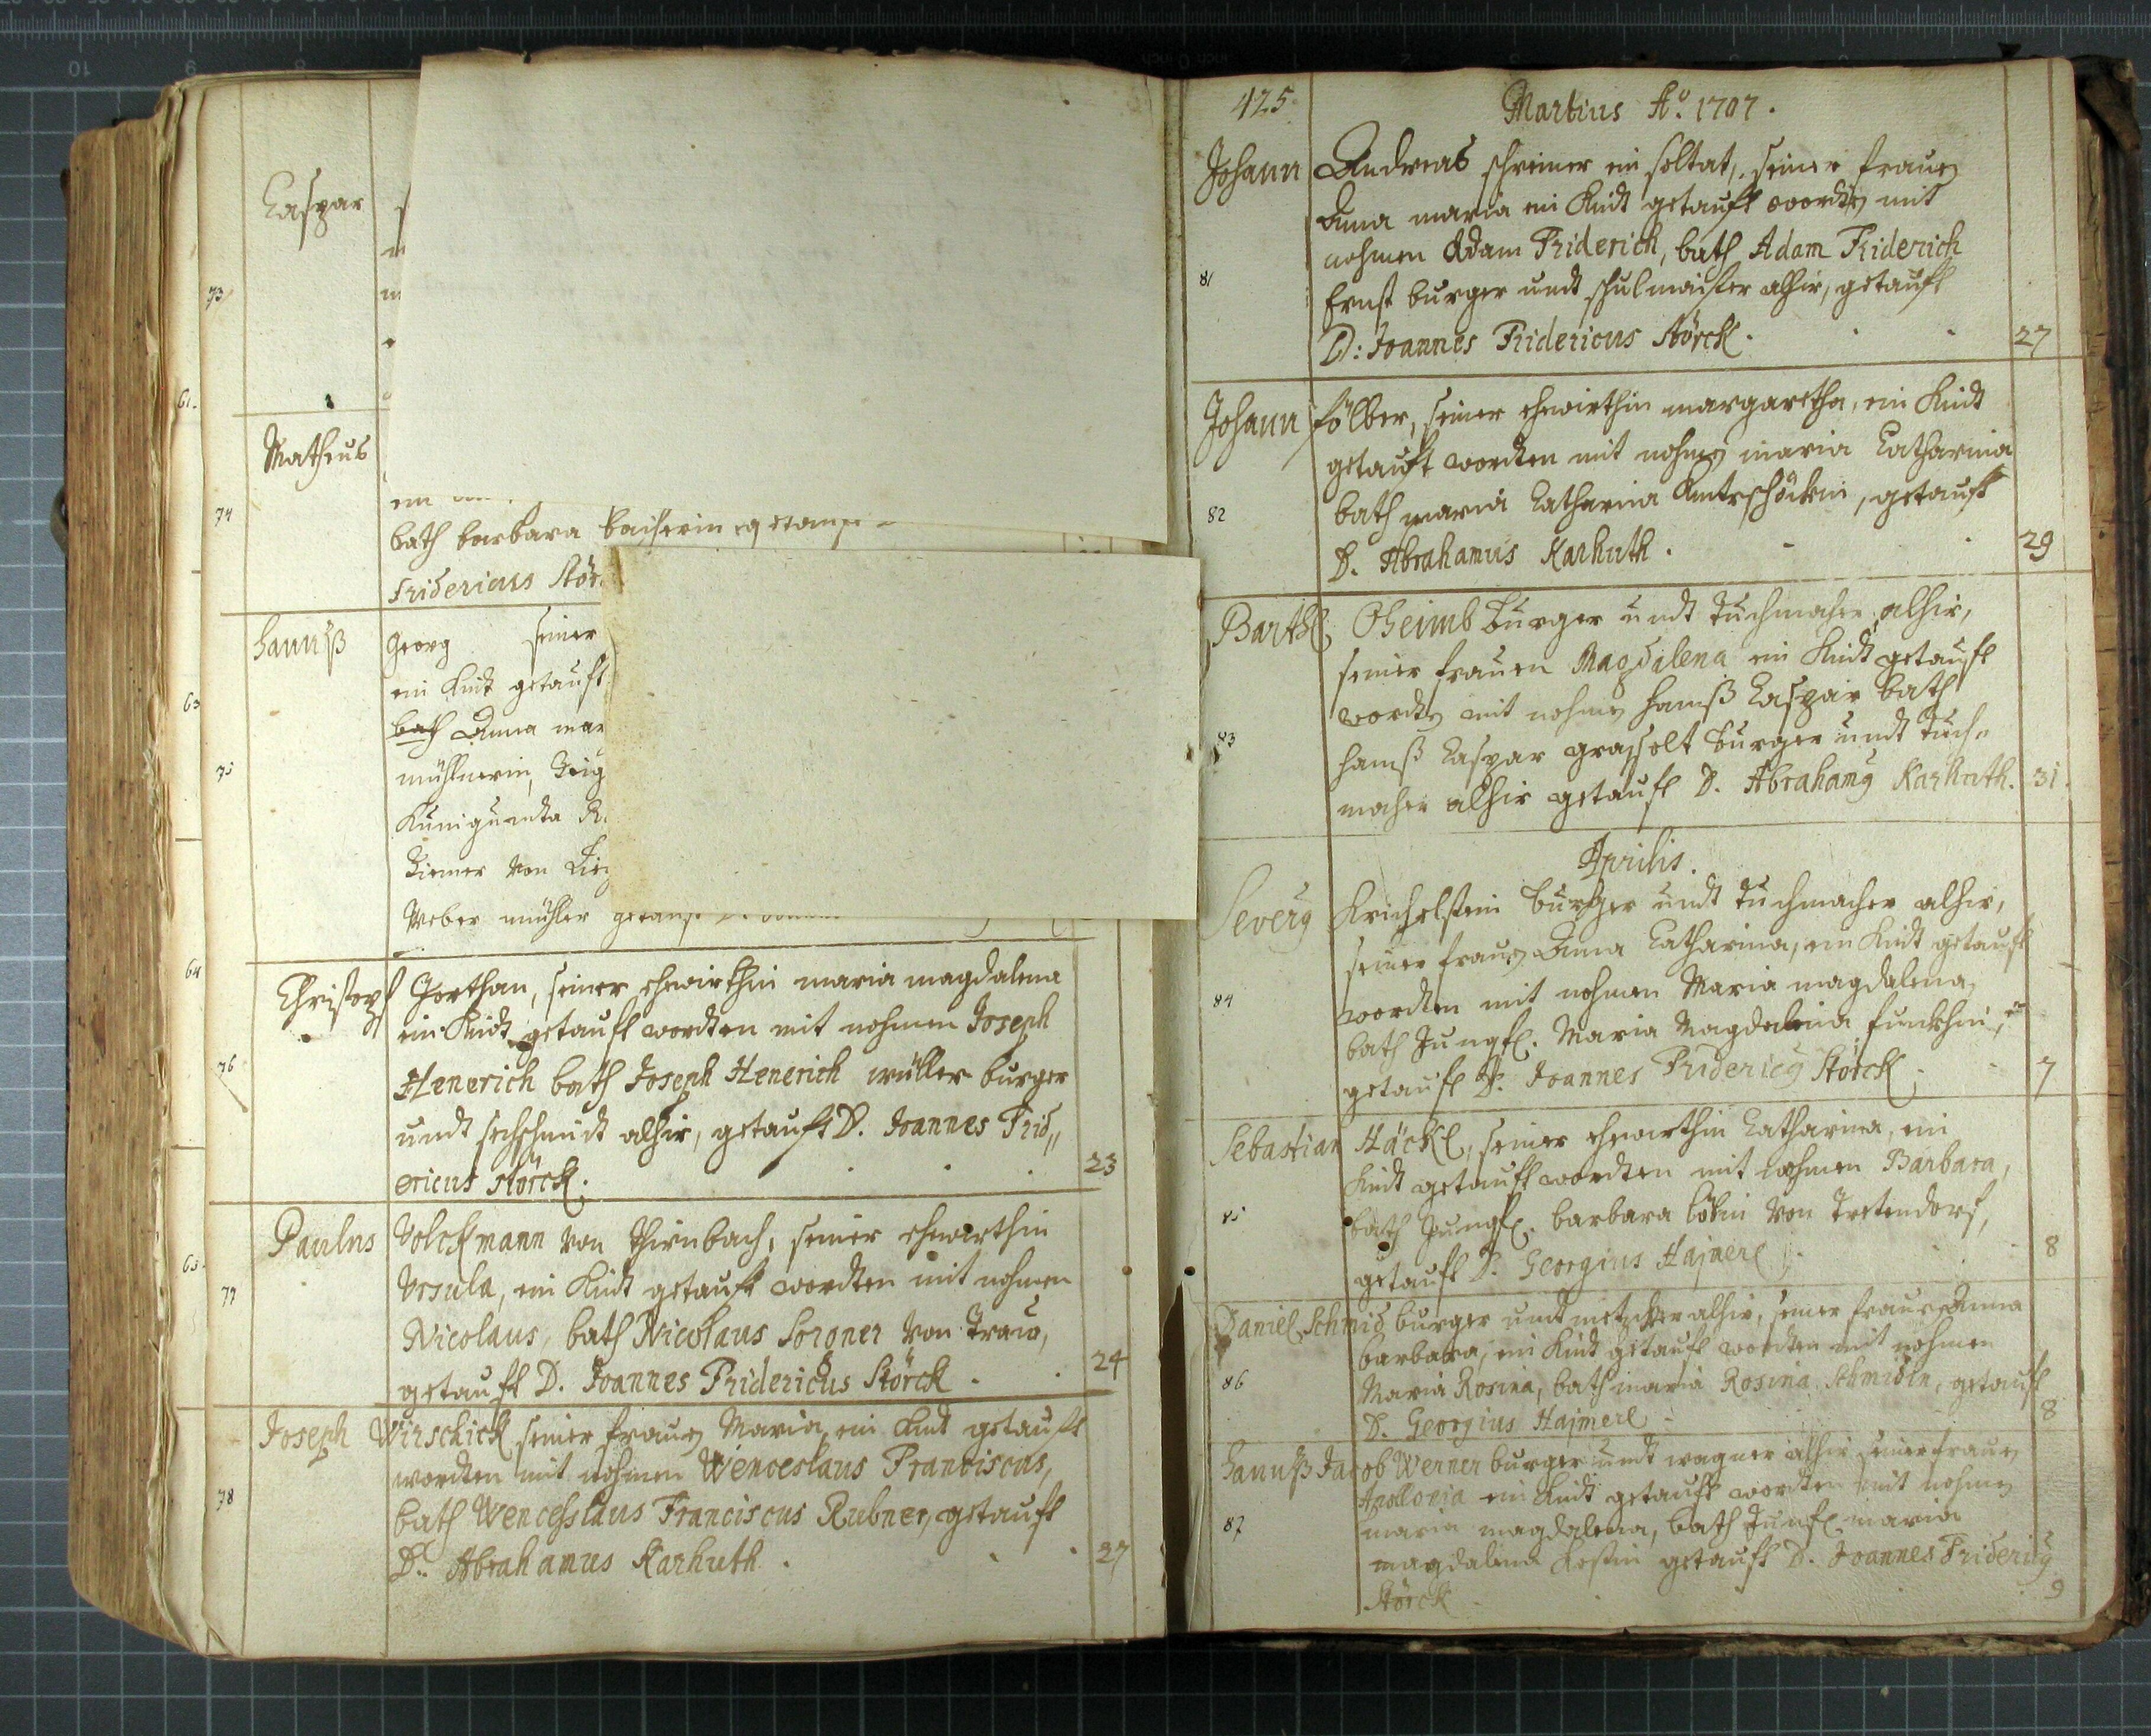 Caspar
73
61.
Matheus
74
bath barbara
Fridericus Stör
Hannß Georg seiner
ein Kindt getaufft
bath Anna mar
63
75
mühlnerin,
Kunigundta
von
Weber mühler getaufft
64
Christoph Jorthan, seiner ehewirthin maria magdalena
ein Kindt getaufft wordten mit nahmen Joseph
76
Henerich bath Joseph Henerich müller burger
undt alhir, getaufft D. Joannes Frid„
ericus Störck. 23
Paulus Volckmann von Thirnbach, seiner ehewirthin
65.
77
Ursula, ein Kindt getaufft wordten mit nahmen
Nicolaus, bath Nicolaus Soroner von
getaufft D. Joannes Fridericus Störck. 24
Joseph Wirschick seiner frauen Maria ein Kindt getaufft
wordten mit nahmen Wenceslaus Franciscus,
78
bath Wenceslaus Franciscus Rubner, getaufft
D. Abrahamus Karhuth. 27
425. Martius Aõ. 1707.
Johann Andreas schreiner ein soltat, seiner frauen
Anna maria ein Kindt getaufft wordten mit
nahmen Adam Friderich, bath Adam Friderich
81
Ernst burger undt schulmaister alhir, getaufft
D: Joannes Fridericus Störck. 27
Johann fölber, seiner ehewirthin margaretha, ein Kindt
getaufft wordten mit nahmen maria Catharina
82
bath maria Catharina, getaufft
D. Abrahamus Karhuth. 29
Barthl Oheimb burger undt tuchmacher alhir,
seiner frauen Magdalena ein Kindt getaufft
wordten mit nahmen hanß Caspar bath
83
hanß Caspar grassolt burger undt tuch„
macher alhir getaufft D. Abrahamus Karhuth. 31.
Aprilis.
Severus Krichelstein burger undt tuchmacher alhir,
seiner frauen Anna Catharina, ein Kindt getaufft
84
wordten mit nahmen Maria magdalena,
bath Jungfl. Maria Magdalena funckhin,
getaufft D. Joannes Fridericus Störck. 7
Sebastian Häckl, seiner ehewirthin Catharina, ein
Kindt getaufft wordten mit nahmen Barbara,
85
bath Jungfl. barbara löwin von Tretendorf,
getaufft D. Georgius Hajmerl. 8
Daniel Schmid burger undt metzcher alhir, seiner frauen Anna
barbara, ein Kindt getaufft wordten mit nahmen
86
Maria Rosina, bath maria Rosina Schmidin, getaufft
D. Georgius Hajmerl. 8
Hannß Jacob Werner burger undt wagner alhir seiner frauen
Apollonia ein Kindt getaufft wordten mit nahmen
87
maria magdalena, bath Junfl maria
magdalena Kostin getaufft D. Joannes Fridericus
Störck 9